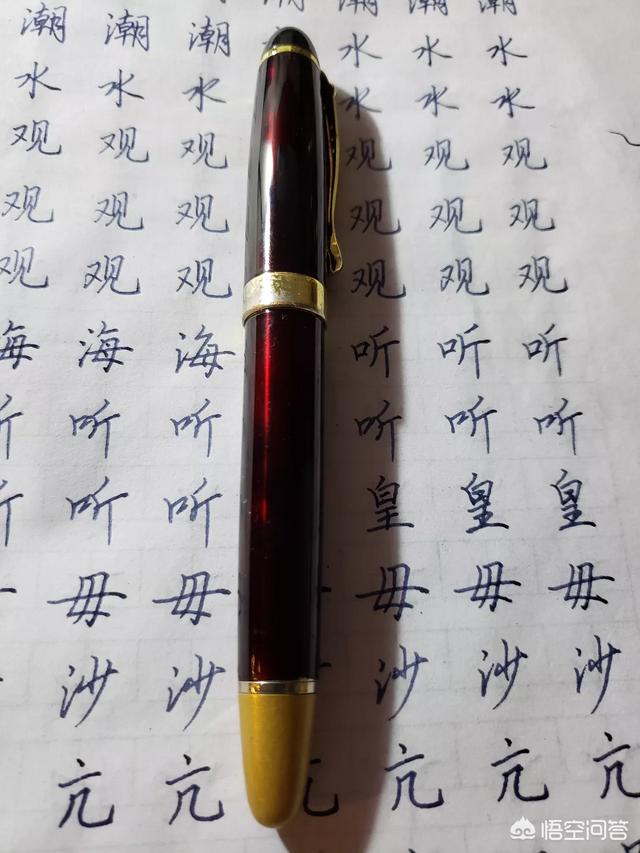 潮 潮 潮 水 水 水
水 水 水 水 水 水
观 观 观 观 观 观
观 观 观 观 观 观
观 观 观 观 观 观
海 海 海 听 听 听
听 听 听 听 听 听
听 听 听 皇 皇 皇
毋 毋 毋 毋 毋
沙 沙 沙 沙 沙
亢 亢 亢 亢 亢
悟空问答